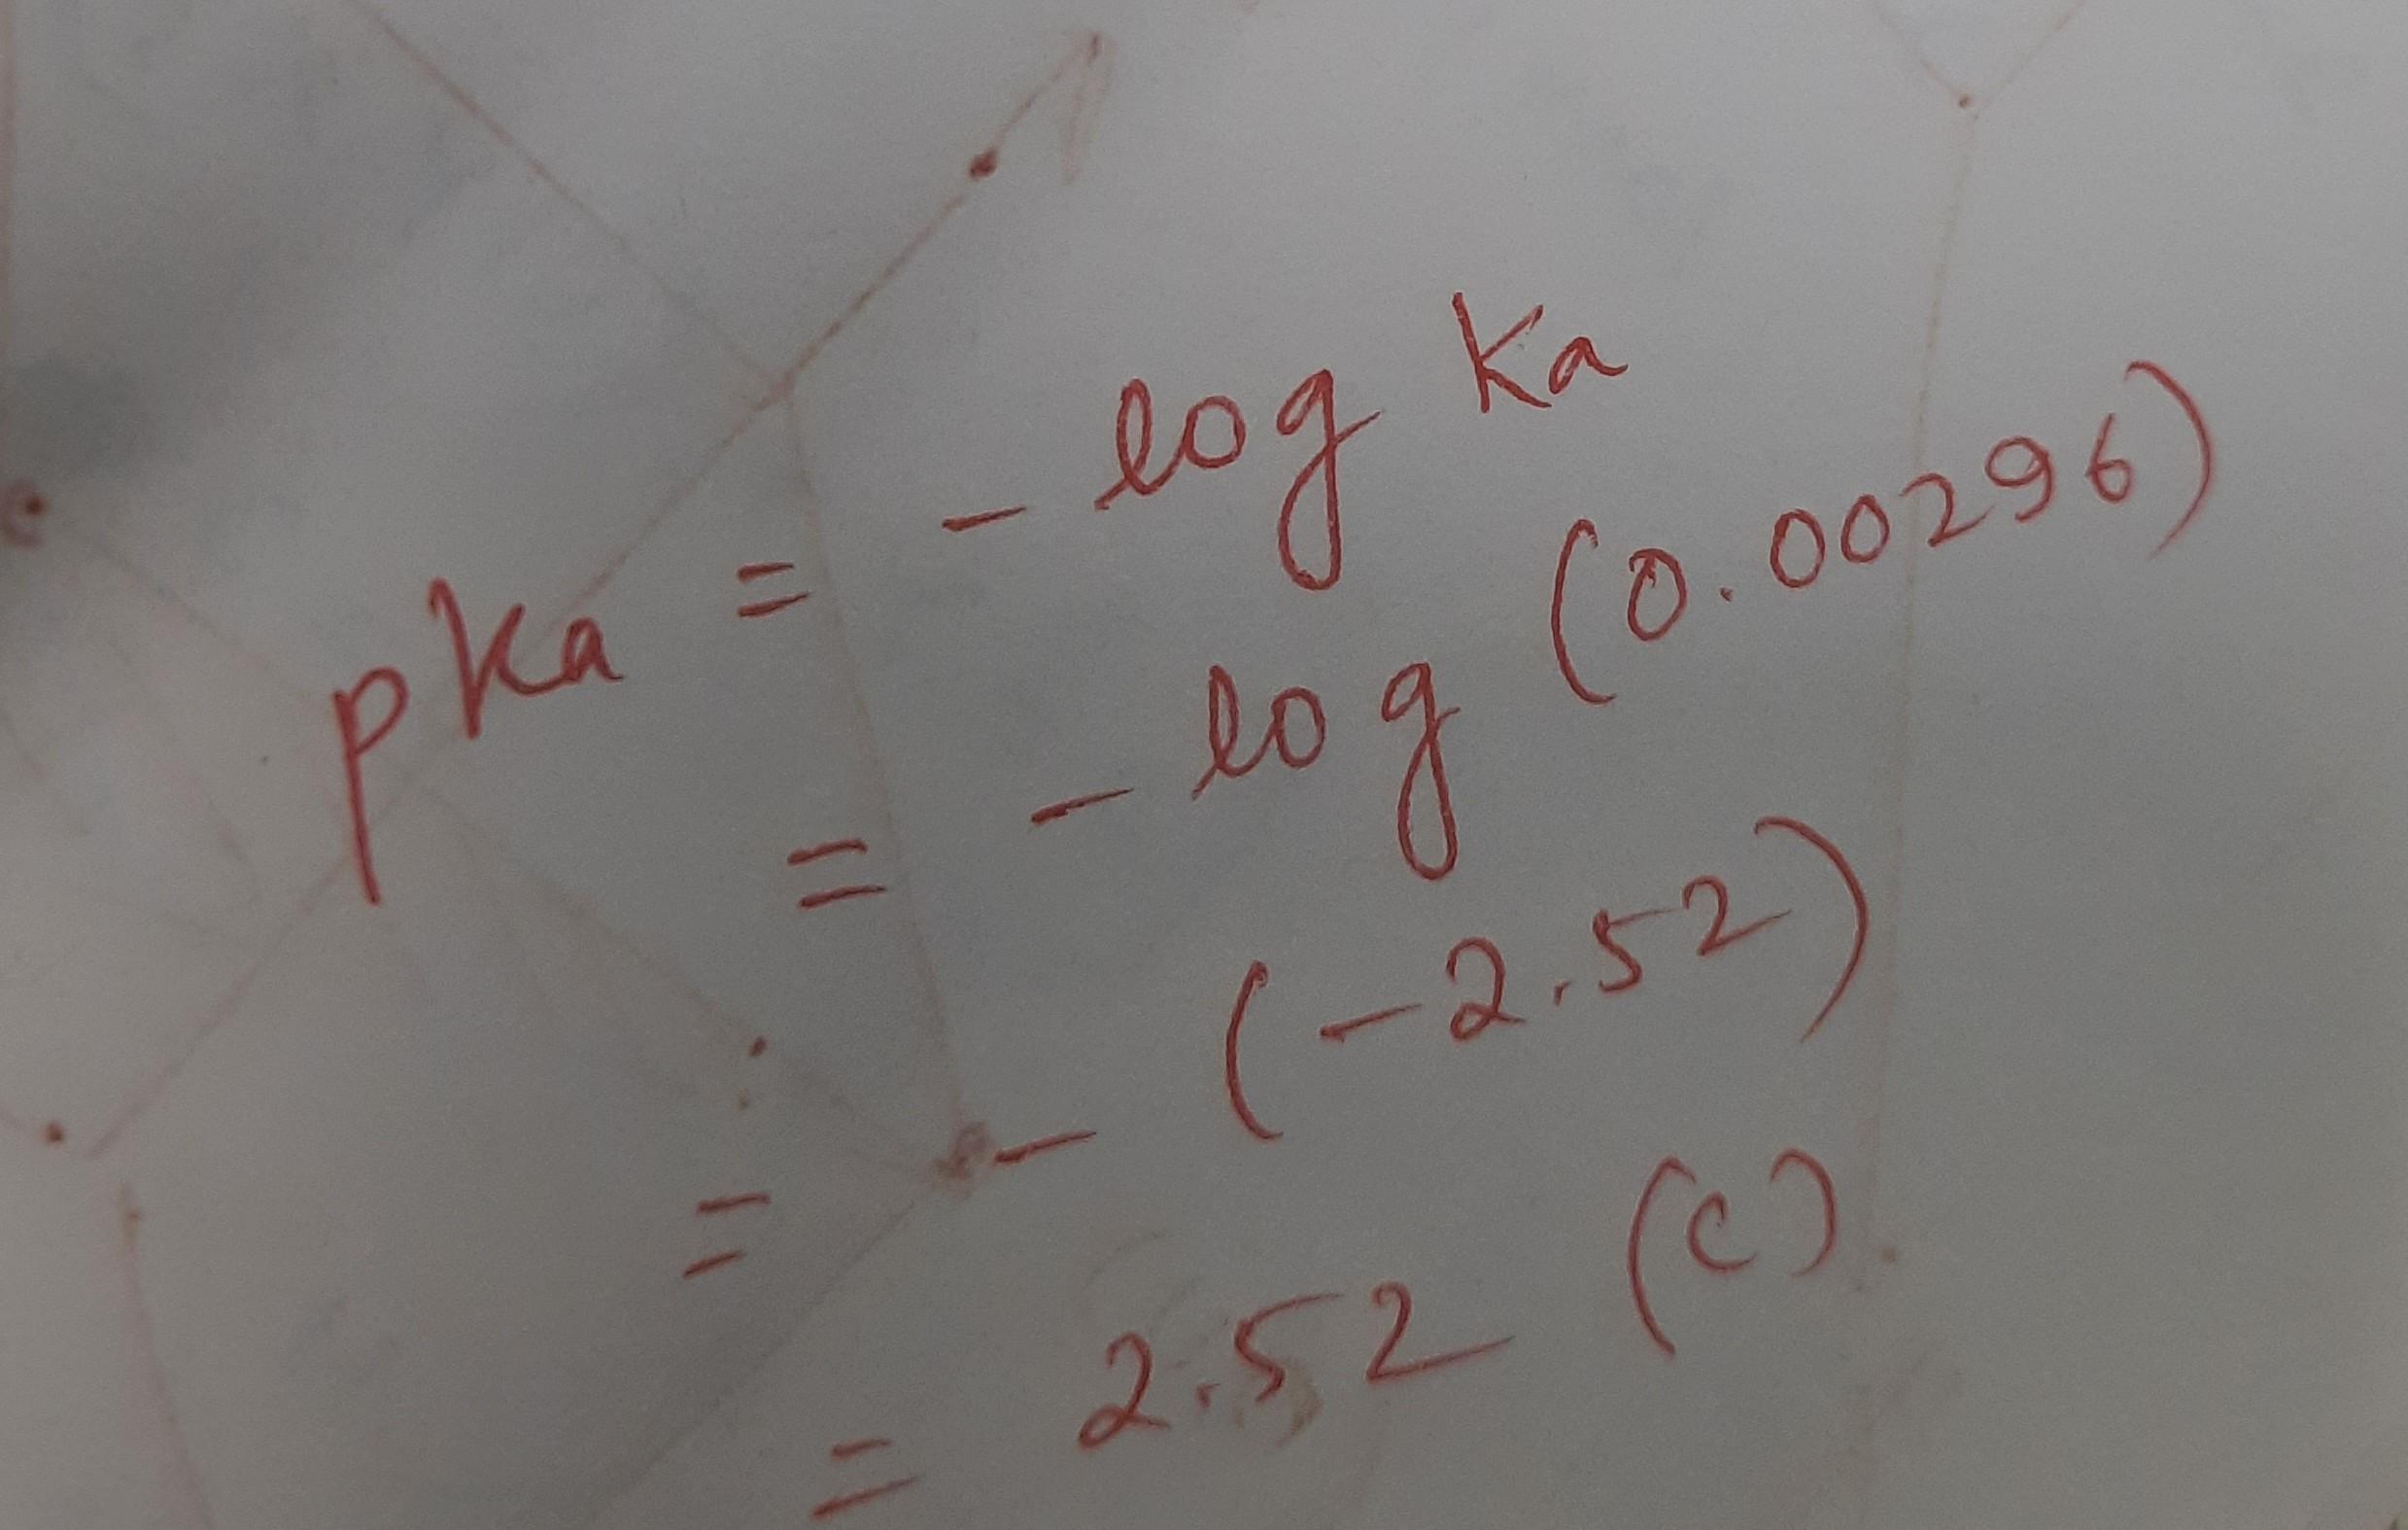 pKa = - log Ka
= - log (0.00296)
= - (-2.52)
= 2.52 (c)